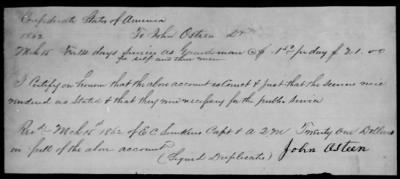 Confederate States of America
1862 To John Osteen Dr
Mch 15 For 14 days services as Guardsman @ 1.50 pr day $21.00
I Certify on honour that the above account is correct & just that the services were
rendered as stated & that they were necessary for the public service
Recd Mch 15th 1862 of E C Simkins Capt & A Q M Twenty One Dollars
in full of the above account
(Signed Duplicates) John Osteen